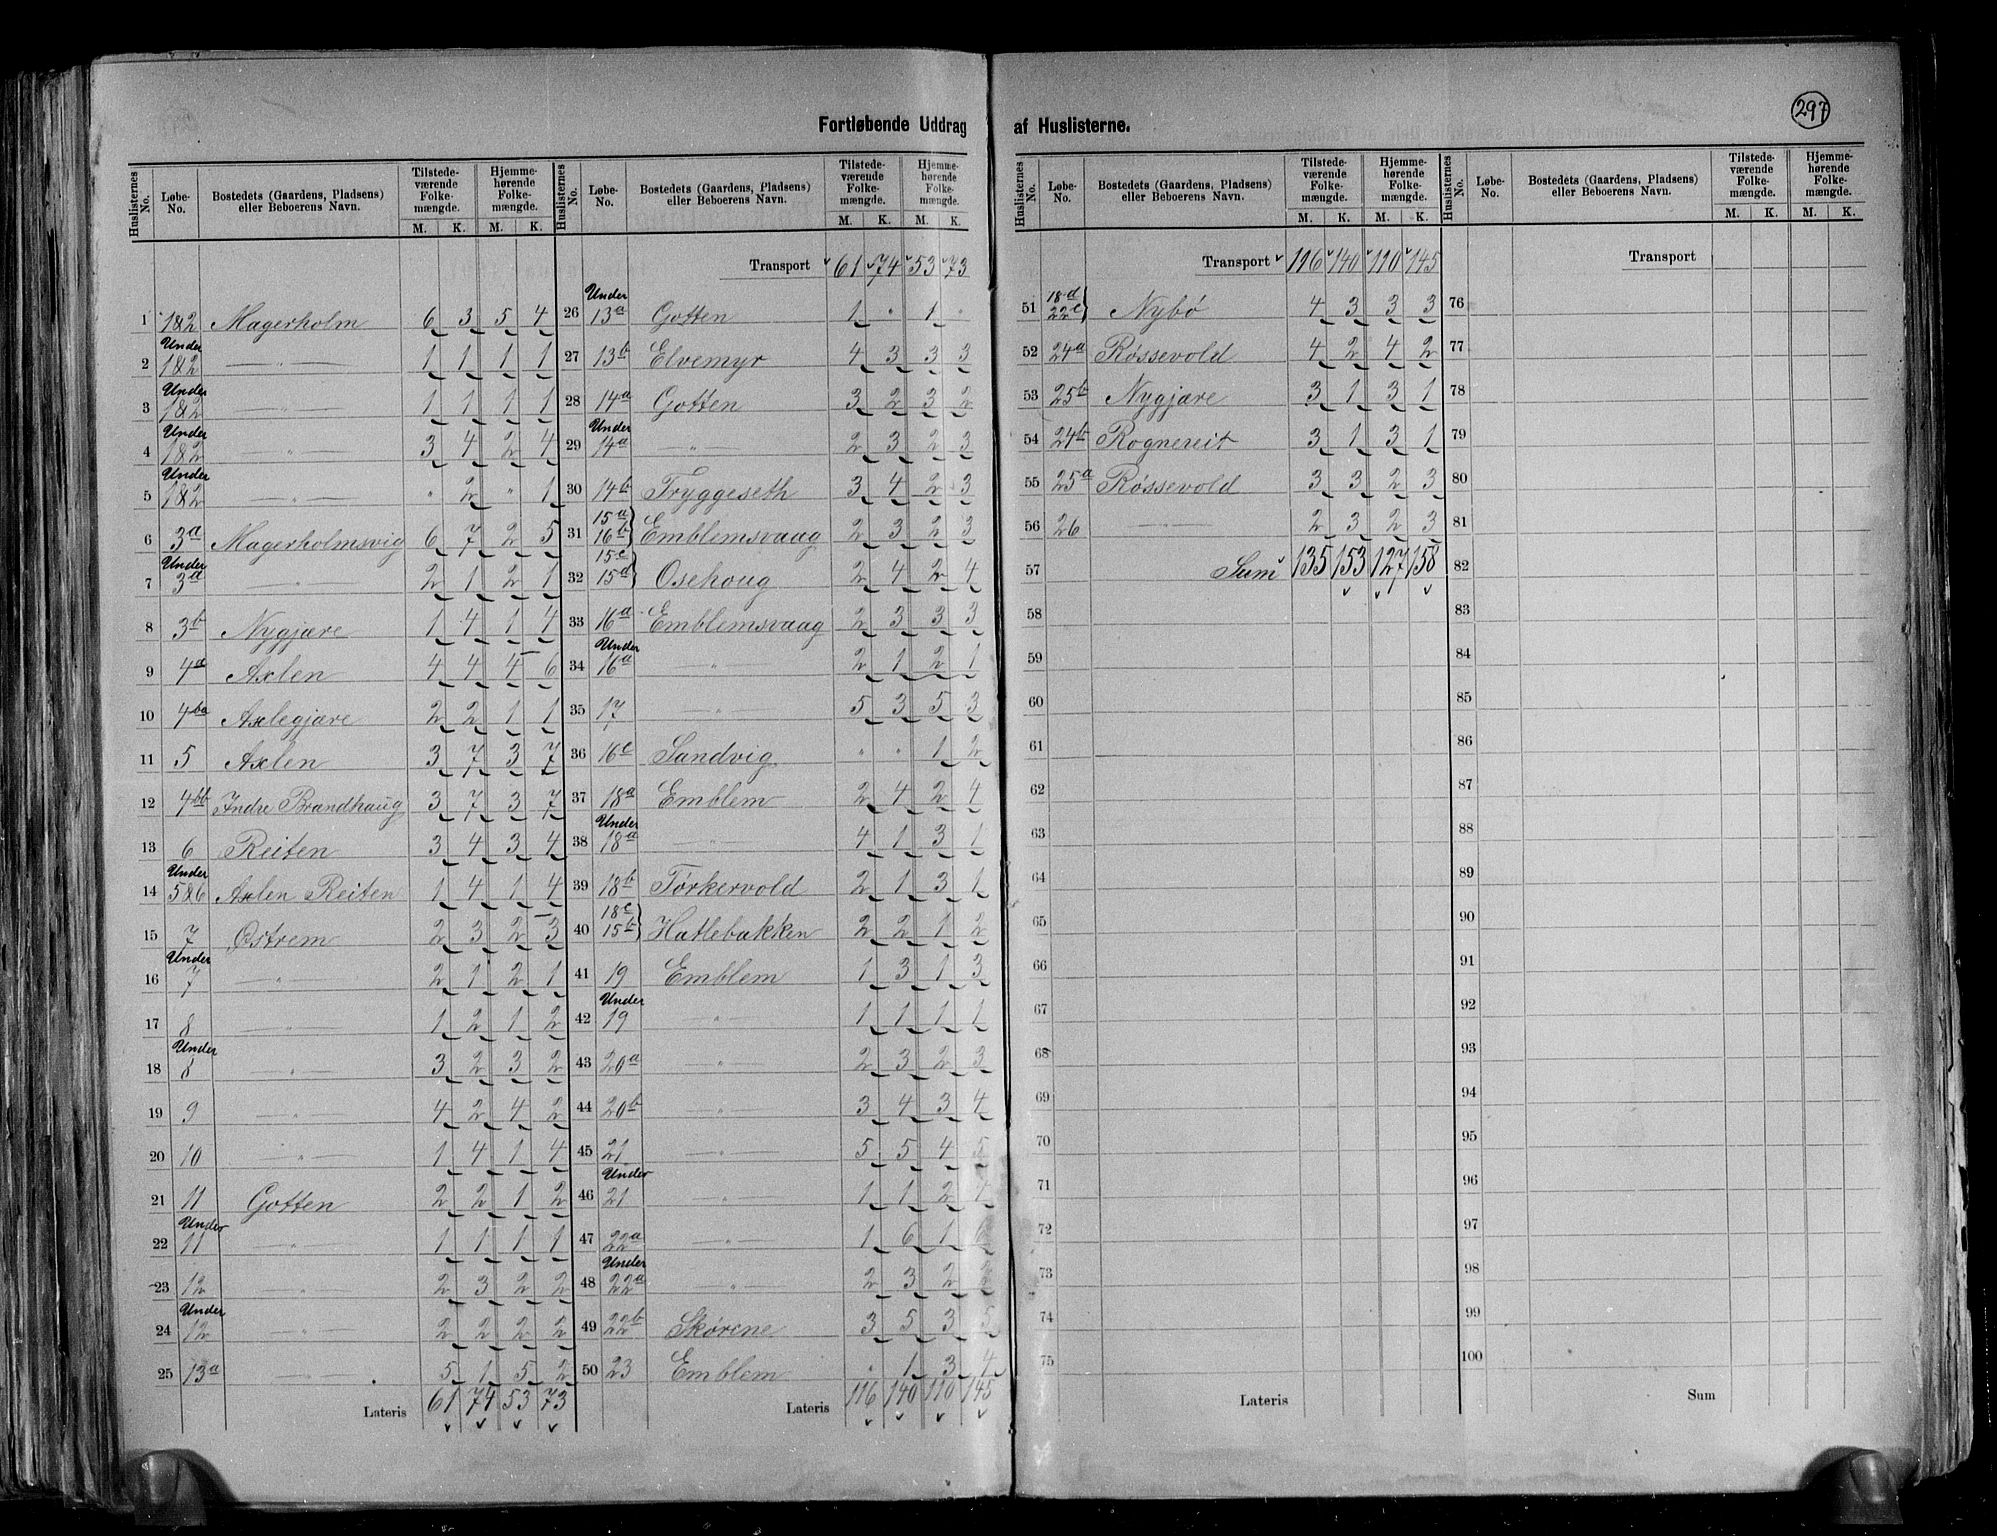 297
Fortløbende Uddrag af Huslisterne.
Huslisternes No. Løbe-No. Bostedets (Gaardens, Pladsens) eller Beboerens Navn. Tilstedeværende Folkemængde. M. K. Hjemmehørende Folkemængde. M. K.
1 1&2 Magerholm 6 3 5 4
2 Under 1&2 — " — 1 1 1 1
3 Under 1&2 — " — 1 1 1 1
4 Under 1&2 — " — 3 4 2 4
5 Under 1&2 — " — " 2 " 1
6 3a Magerholmsvig 6 7 2 5
7 Under 3a — " — 2 1 2 1
8 3b Nygjære 1 4 1 4
9 4a Axlen 4 4 4 6
10 4ba Axlegjære 2 2 1 1
11 5 Axlen 3 7 3 7
12 4bb Indre Brandhaug 3 7 3 7
13 6 Reiten 3 4 3 4
14 Under 5&6 Axlen Reiten 1 4 1 4
15 7 Østrem 2 3 2 3
16 Under 7 — " — 2 1 2 1
17 8 — " — 1 2 1 2
18 Under 8 — " — 3 2 3 2
19 9 — " — 4 2 4 2
20 10 — " — 1 4 1 4
21 11 Gotten 2 2 1 2
22 Under 11 — " — 1 1 1 1
23 12 — " — 2 3 2 2
24 Under 12 — " — 2 2 2 2
25 13a — " — 5 1 5 2
Lateris 61 74 53 73
Huslisternes No. Løbe-No. Bostedets (Gaardens, Pladsens) eller Beboerens Navn. Tilstedeværende Folkemængde. M. K. Hjemmehørende Folkemængde. M. K.
Transport 61 74 53 73
26 Under 13a Gotten 1 " 1 "
27 13b Elvemyr 4 3 3 3
28 14a Gotten 3 2 3 2
29 Under 14a — " — 2 3 2 3
30 14b Tryggeseth 3 4 2 3
31 15a 16b } Emblemsvaag 2 3 2 3
32 15c 15d } Osehoug 2 4 2 4
33 16a Emblemsvaag 2 3 3 3
34 Under 16a — " — 2 1 2 1
35 17 — " — 5 3 5 3
36 16c Sandvig " " 1 2
37 18a Emblem 2 4 2 4
38 Under 18a — " — 4 1 3 1
39 18b Tørkervold 2 1 3 1
40 18c 15b } Hatlebakken 2 2 1 2
41 19 Emblem 1 3 1 3
42 Under 19 — " — 1 1 1 1
43 20a — " — 2 3 2 3
44 20b — " — 3 4 3 4
45 21 — " — 5 5 4 5
46 Under 21 — " — 1 1 2 1
47 22a — " — 1 6 1 6
48 Under 22a — " — 2 3 2
49 22b Skørene 3 5 3 5
50 23 Emblem " 1 3 4
Lateris 116 140 110 145
Huslisternes No. Løbe-No. Bostedets (Gaardens, Pladsens) eller Beboerens Navn. Tilstedeværende Folkemængde. M. K. Hjemmehørende Folkemængde. M. K.
Transport 116 140 110 145
51 18d 22c } Nybø 4 3 3 3
52 24a Røssevold 4 2 4 2
53 25b Nygjære 3 1 3 1
54 24b Rognereit 3 1 3 1
55 25a Røssevold 3 3 2 3
56 26 — " — 2 3 2 3
57 Sum 135 153 127 158
58
59
60
61
62
63
64
65
66
67
68
69
70
71
72
73
74
75
Lateris
Huslisternes No. Løbe-No. Bostedets (Gaardens, Pladsens) eller Beboerens Navn. Tilstedeværende Folkemængde. M. K. Hjemmehørende Folkemængde. M. K.
Transport
76
77
78
79
80
81
82
83
84
85
86
87
88
89
90
91
92
93
94
95
96
97
98
99
100
Sum